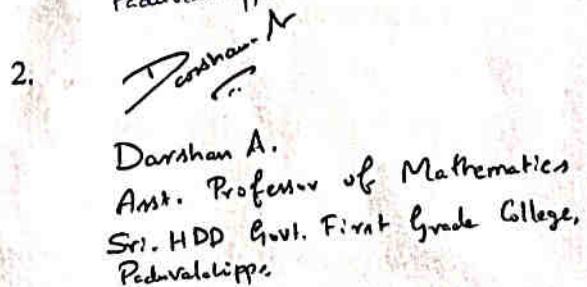 2.
Darshan A
Darshan A.
Asst. Professor of Mathematics
Sri. HDD Govt. First Grade College,
Paduvalahippe